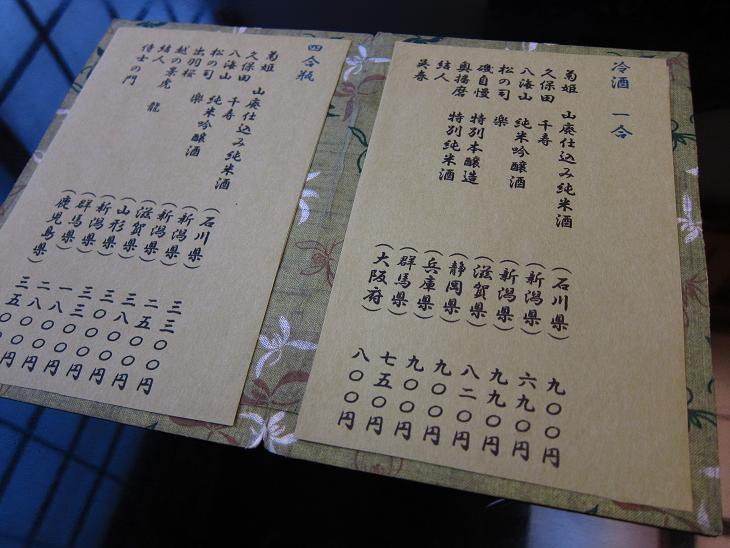 冷酒 一合
菊姫 山廃仕込み純米酒 (石川県) 九〇〇円
久保田 千寿 (新潟県) 六九〇円
八海山 純米吟醸酒 (新潟県) 九九〇円
松の司 楽 (滋賀県) 八二〇円
磯自慢 特別本醸造 (静岡県) 九〇〇円
奥播磨 特別純米酒 (兵庫県) 九〇〇円
結人 (群馬県) 七五〇円
呉春 (大阪府) 八〇〇円
四合瓶
菊姫 山廃仕込み純米酒 (石川県) 三三〇〇円
久保田 千寿 (新潟県) 二五〇〇円
八海山 純米吟醸酒 (新潟県) 三八〇〇円
松の司 楽 (滋賀県) 三〇〇〇円
出羽桜 (山形県)
越の景虎 龍 (新潟県)
結人 (群馬県)
侍士の門 (鹿児島県) 三五〇〇円